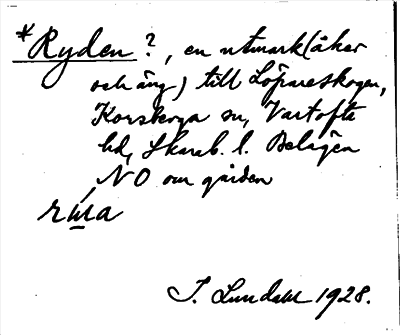 *Ryden?, en utmark (åker
och äng) till Löpareskogen,
Korsberga sn, Vartofta
hd, Skarab. l. Belägen
NO om gården
I. Lundahl 1928.